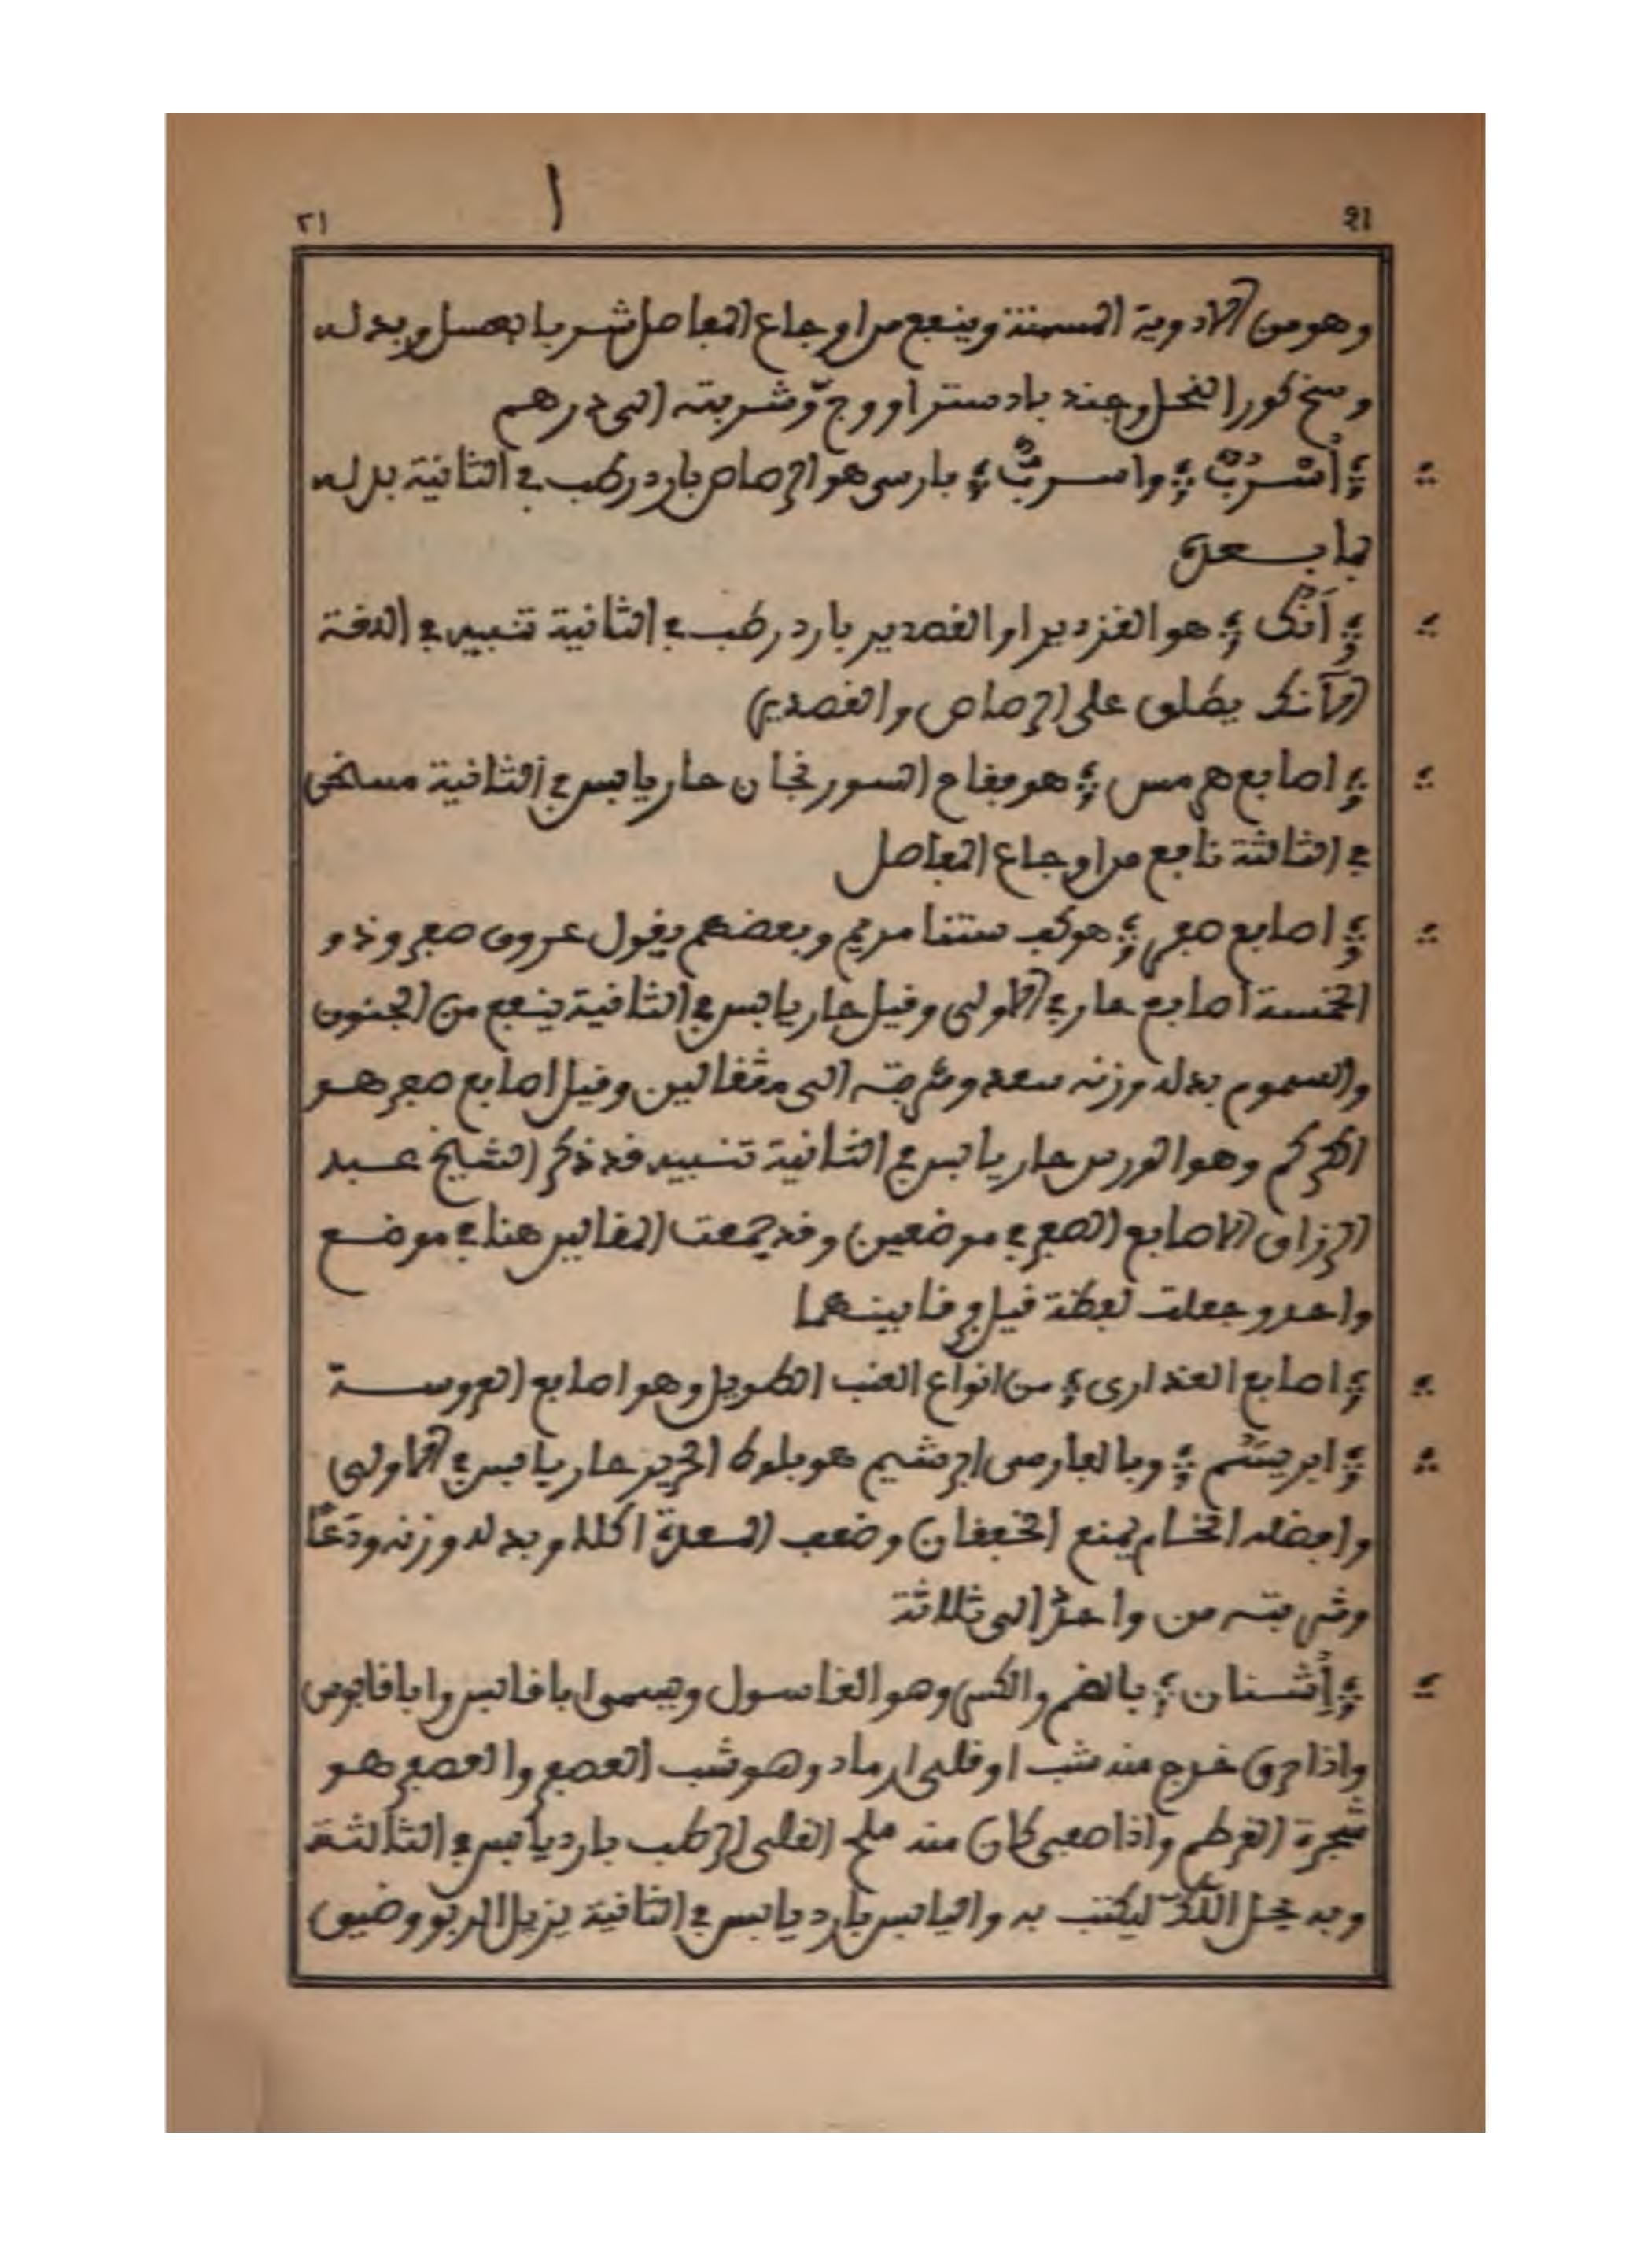 ٢١ ا ٢١
وهو من الادوية المسمنة وينفع من اوجاع المفاصل شربا بالعسل وبدله
وسخ كور النحل وجند بادستر او وج وشربته الى درهم
أُسْرُبٌ واسربٌّ فارسي هو الرصاص بارد رطب في الثانية بدله
ما بعده
آنُك هو القزدير او القصدير بارد رطب في الثانية تنبيه في اللغة
(الآنك يطلق على الرصاص والقصدير)
اصابع هرمس هو فقاح السورنجان حار يابس في الثانية مسخن
في الثالثة نافع من اوجاع المفاصل
اصابع صفر هو كف ستنا مريم وبعضهم يقول عروق صفر وذو
الخمسة اصابع حار في الاولى وقيل حار يابس في الثانية ينفع من الجنون
والسموم بدله وزنه سعد وشربته الى مثقالين وقيل اصابع صفر هو
الكركم وهو الورس حار يابس في الثانية تنبيه قد ذكر الشيخ عبد
الرزاق الاصابع الصفر في موضعين وقد جمعت المقالين هنا في موضع
واحد وجعلت لفظة قيل فرقا بينهما
اصابع العذارى من انواع العنب الطويل وهو اصابع العروسة
ابريسَم وبالفارسي ابرشيم هو بلوط الحرير حار يابس في الاولى
وافضله الخام يمنع الخفقان وضعف المعدة اكلا وبدله وزنه ودَعًا
وشربته من واحد الى ثلاثة
أُشنان بالضم والكسر وهو الغاسول ويسمى ابا قابس وابا قابوس
واذا حرق خرج منه شب او قلي ارماد وهو شب العصفر والعصفر هو
شجرة القرطم واذا صفي كان منه ملح القلي الرطب بارد يابس في الثالثة
وبه يحل اللكّ ليكتب به واليابس بارد يابس في الثانية يزيل الربو وضيق